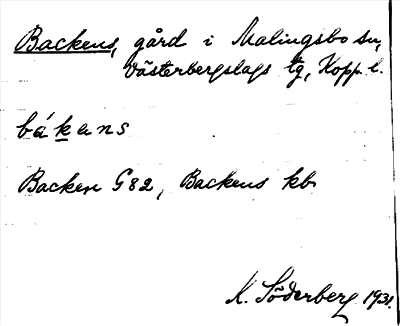 Backens, gård i Malingsbo sn,
Västerbergslags tg, Kopp. l.
bákens
Backen G82, Backens kb
K. Söderberg 1931.